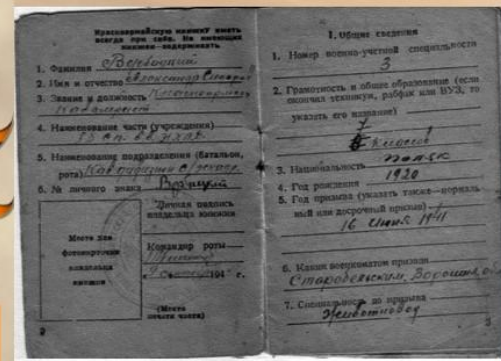 Красноармейскую книжку иметь
всегда при себе. Не имеющих
книжек—задерживать.
1. Фамилия Вербицкий
2. Имя и отчество Александр
3. Звание и должность Красноармеец
4. Наименование части (учреждения)
5. Наименование подразделения (батальон,
рота)
6. № личного знака
Место для
фотокарточки
владельца
книжки
Личная подпись
владельца книжки
Командир роты
194 г.
(Место
печати части)
2
I. Общие сведения
1. Номер военно-учетной специальности
3
2. Грамотность и общее образование (если
окончил техникум, рабфак или ВУЗ, то
указать его название)
7
классов
3. Национальность поляк
4. Год рождения 1920
5. Год призыва (указать также—нормаль
ный или досрочный призыв)
16 июня 1941
6. Каким военкоматом призван
Старобельским, Ворошилов
7. Специальность до призыва
Животновод
3